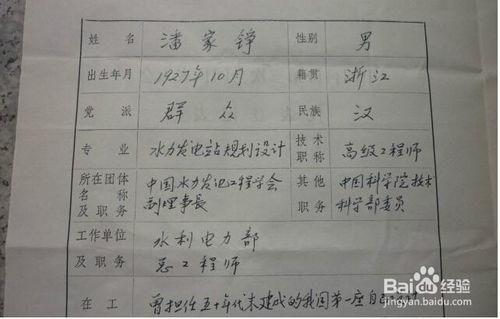 姓 名 潘家铮 性别 男
出生年月 1927年10月 籍贯 浙江
党 派 群众 民族 汉
专 业 水力发电站规划设计 技术职称 高级工程师
所在团体 中国水力发电工程学会 其他 中国科学院技术
名 称 副理事長 职务 科学部委员
及职务
工作单位 水利电力部
及职务 总工程师
在 工 曾担任五十年代末建成的我国第一座自
Baidu 经验
jingyan.baidu.com